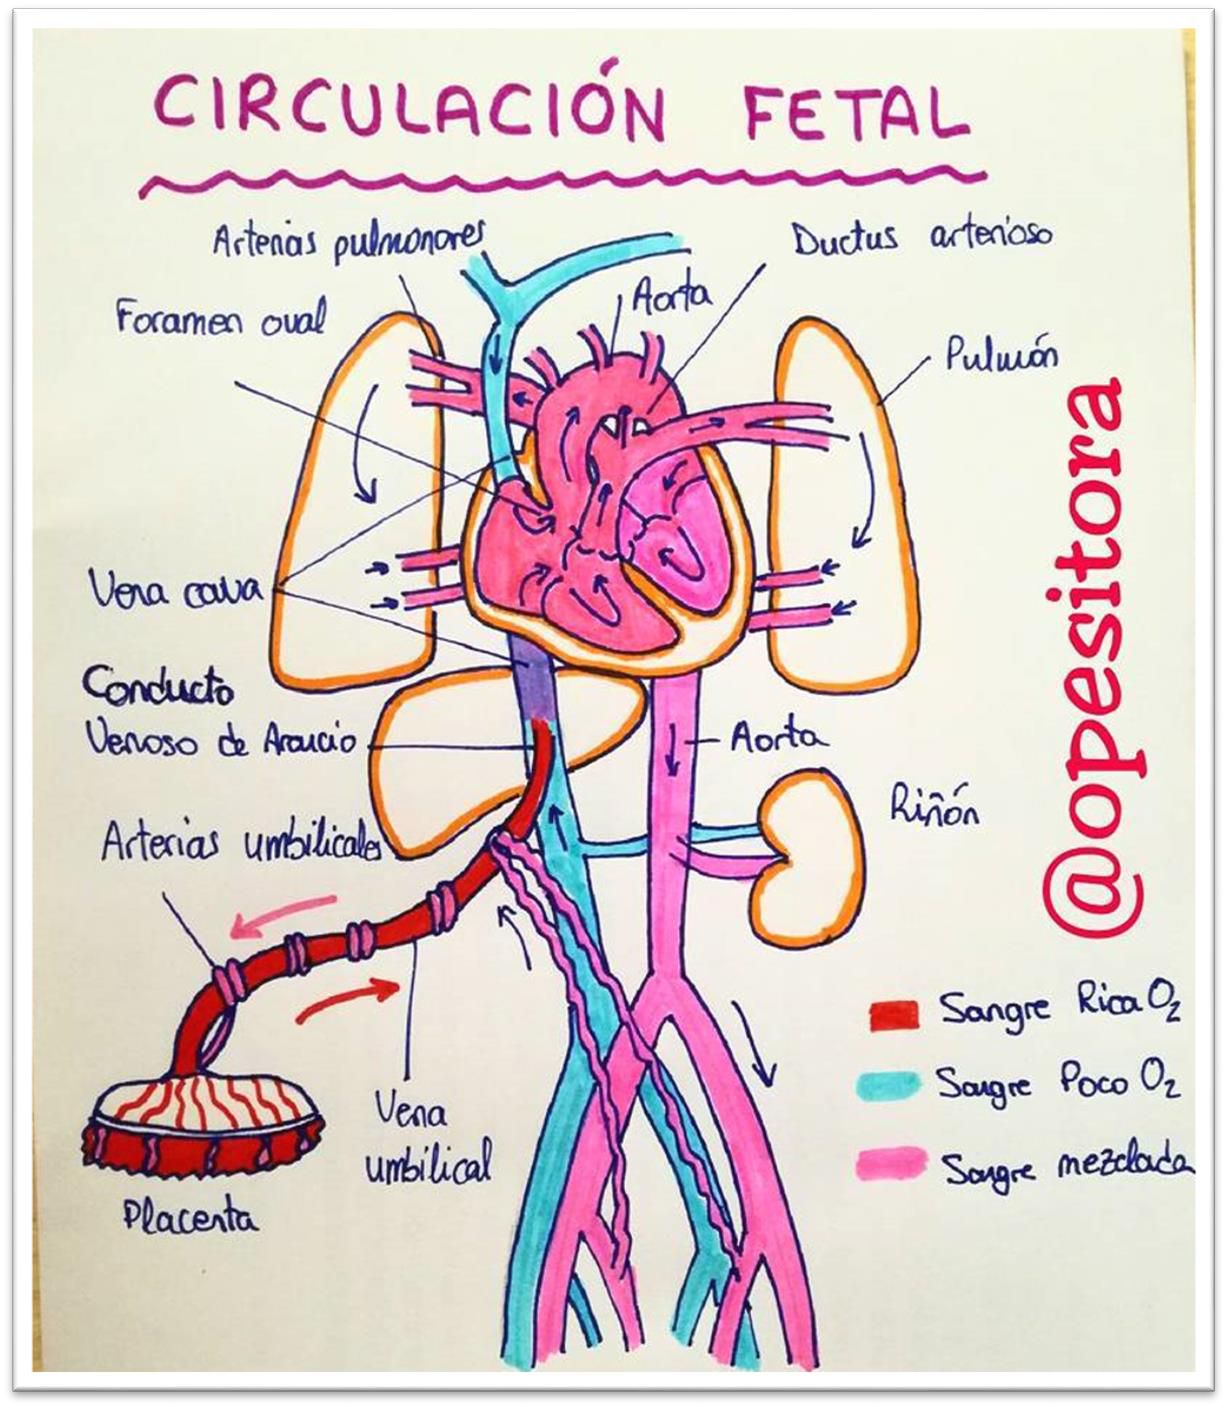 CIRCULACIÓN FETAL
Arterias pulmonares
Ductus arterioso
Foramen oval
Aorta
Pulmón
Vena cava
Conducto
Venoso de Arancio
Aorta
Riñón
Arterias umbilicales
Vena
umbilical
Placenta
Sangre Rica O2
Sangre Poco O2
Sangre mezclada
@opesitora